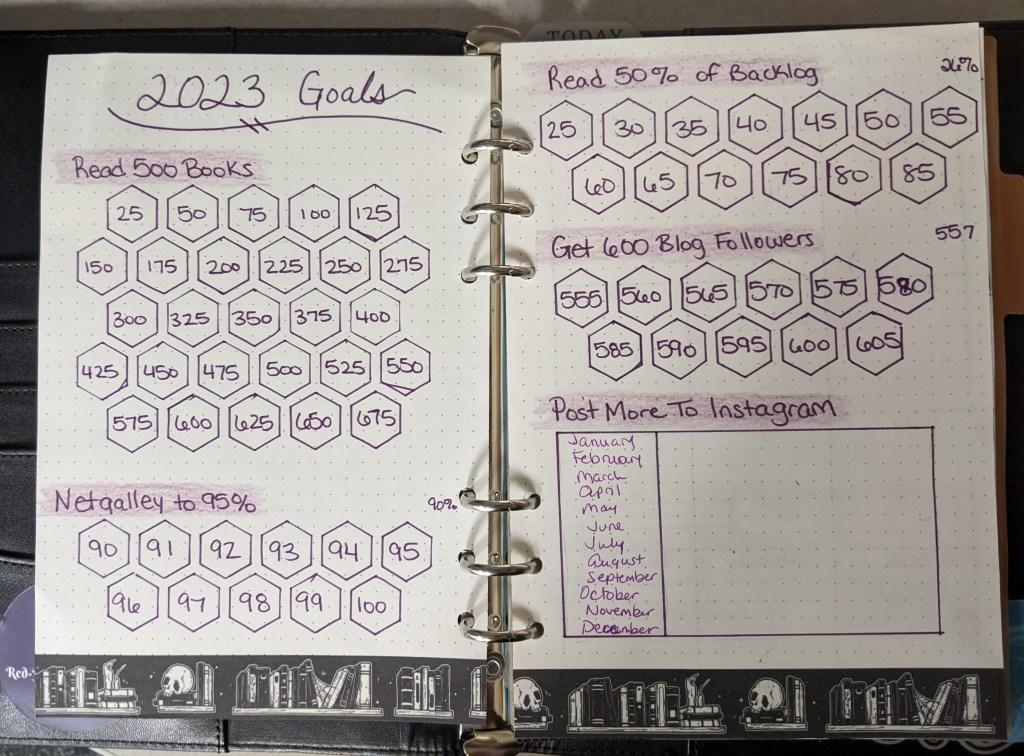 2023 Goals
Read 500 Books
25 50 75 100 125
150 175 200 225 250 275
300 325 350 375 400
425 450 475 500 525 550
575 600 625 650 675
Netgalley to 95%
90%
90 91 92 93 94 95
96 97 98 99 100
Red.
TODAY
Read 50% of Backlog
26%
25 30 35 40 45 50 55
60 65 70 75 80 85
Get 600 Blog Followers
557
555 560 565 570 575 580
585 590 595 600 605
Post More To Instagram
January
February
March
April
May
June
July
August
September
October
November
December